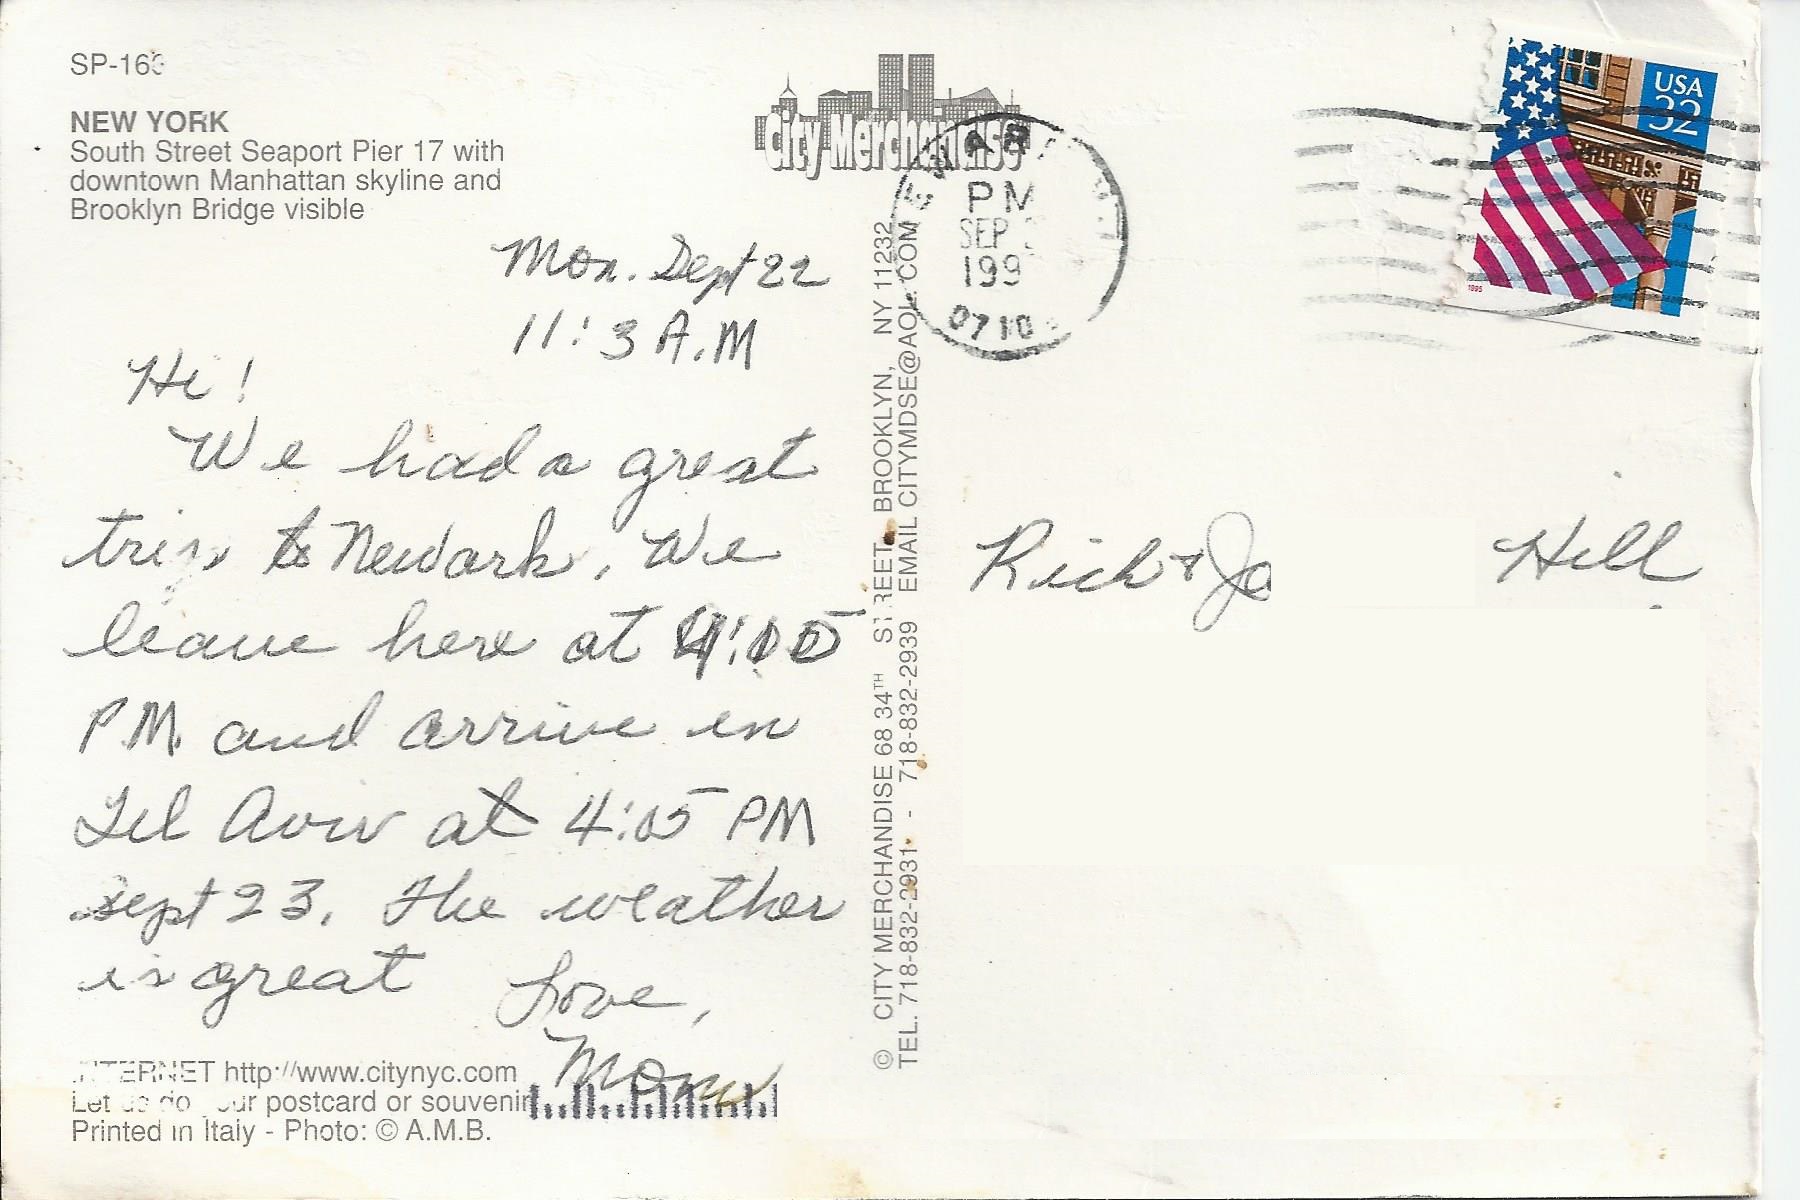 SP-163
NEW YORK
South Street Seaport Pier 17 with
downtown Manhattan skyline and
Brooklyn Bridge visible
Mon. Sept 22
11:3 A.M
Hi!
We had a great
trip to Newark. We
leave here at 4:00
P.M. and arrive in
Tel Aviv at 4:05 PM
Sept 23. The weather
is great Love,
Mom
INTERNET http://www.citynyc.com
Let us do your postcard or souvenir
Printed in Italy - Photo: © A.M.B.
City Merchandise
© CITY MERCHANDISE 68 34TH STREET BROOKLYN, NY 11232
TEL. 718-832-2931 - 718-832-2939 EMAIL CITYMDSE@AOL.COM
PM
SEP
199
0710
USA
32
1995
Rich + Jo Hill